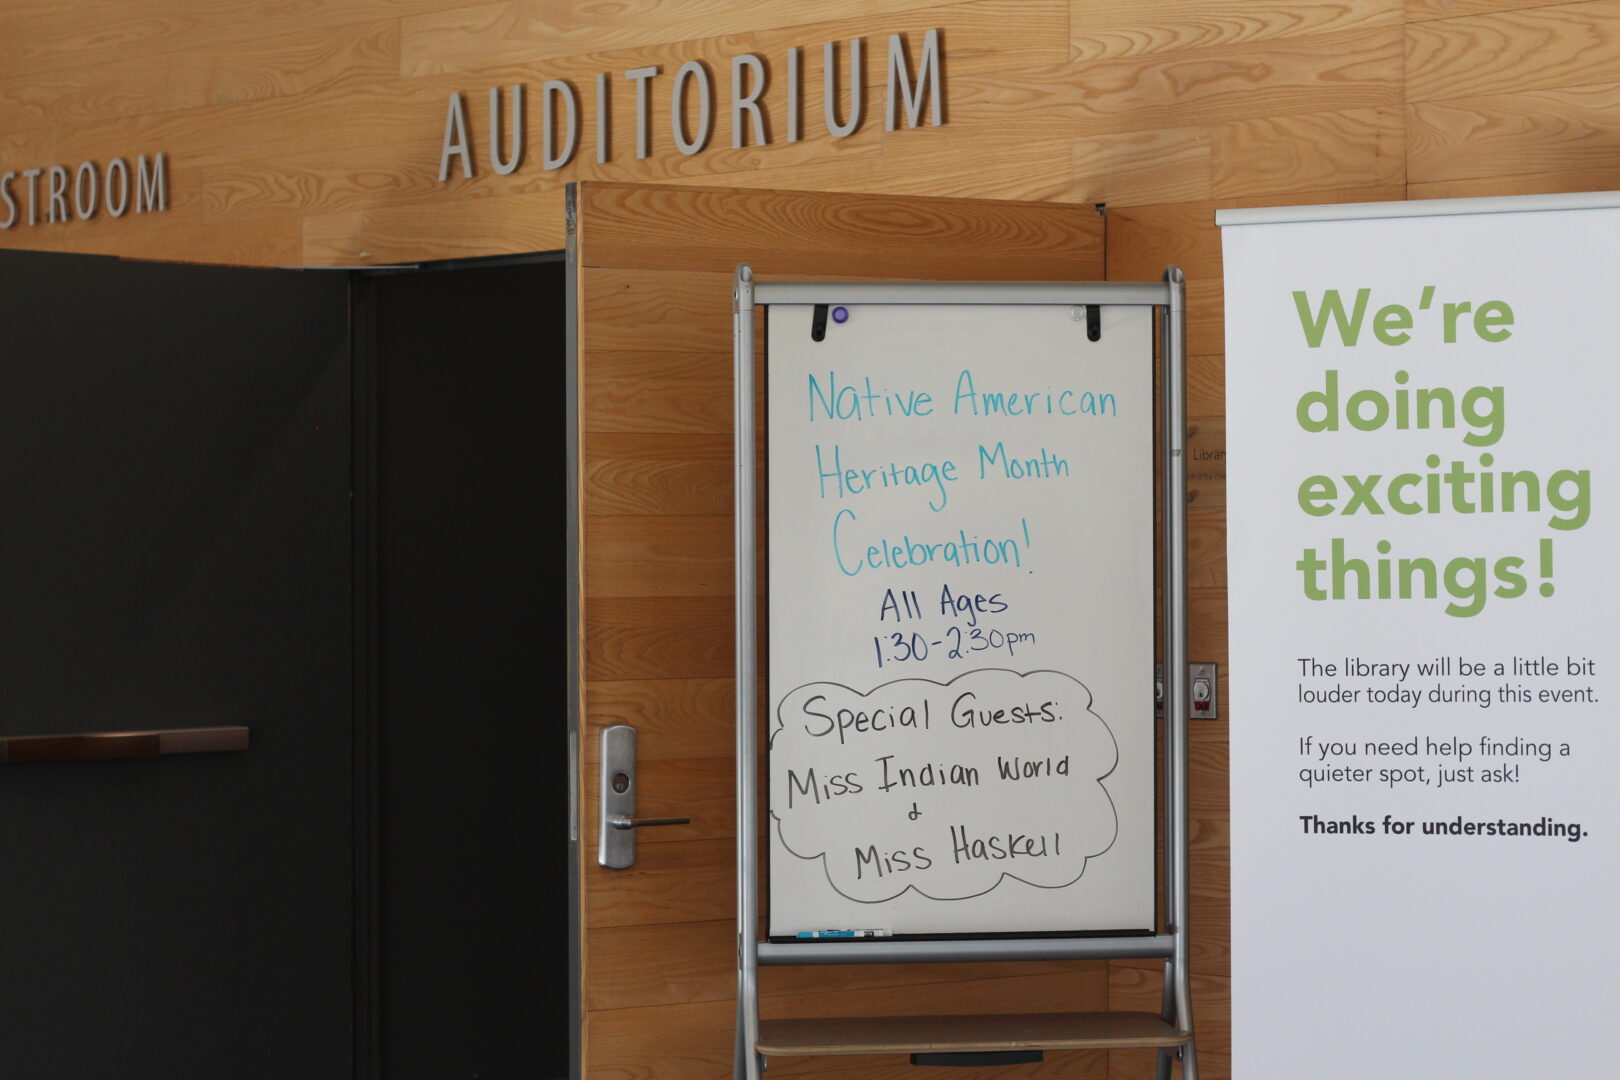 AUDITORIUM
STROOM
Native American
Heritage Month
Celebration!
All Ages
1:30-2:30pm
Special Guests:
Miss Indian World
&
Miss Haskell
Library
We're
doing
exciting
things!
The library will be a little bit
louder today during this event.
If you need help finding a
quieter spot, just ask!
Thanks for understanding.